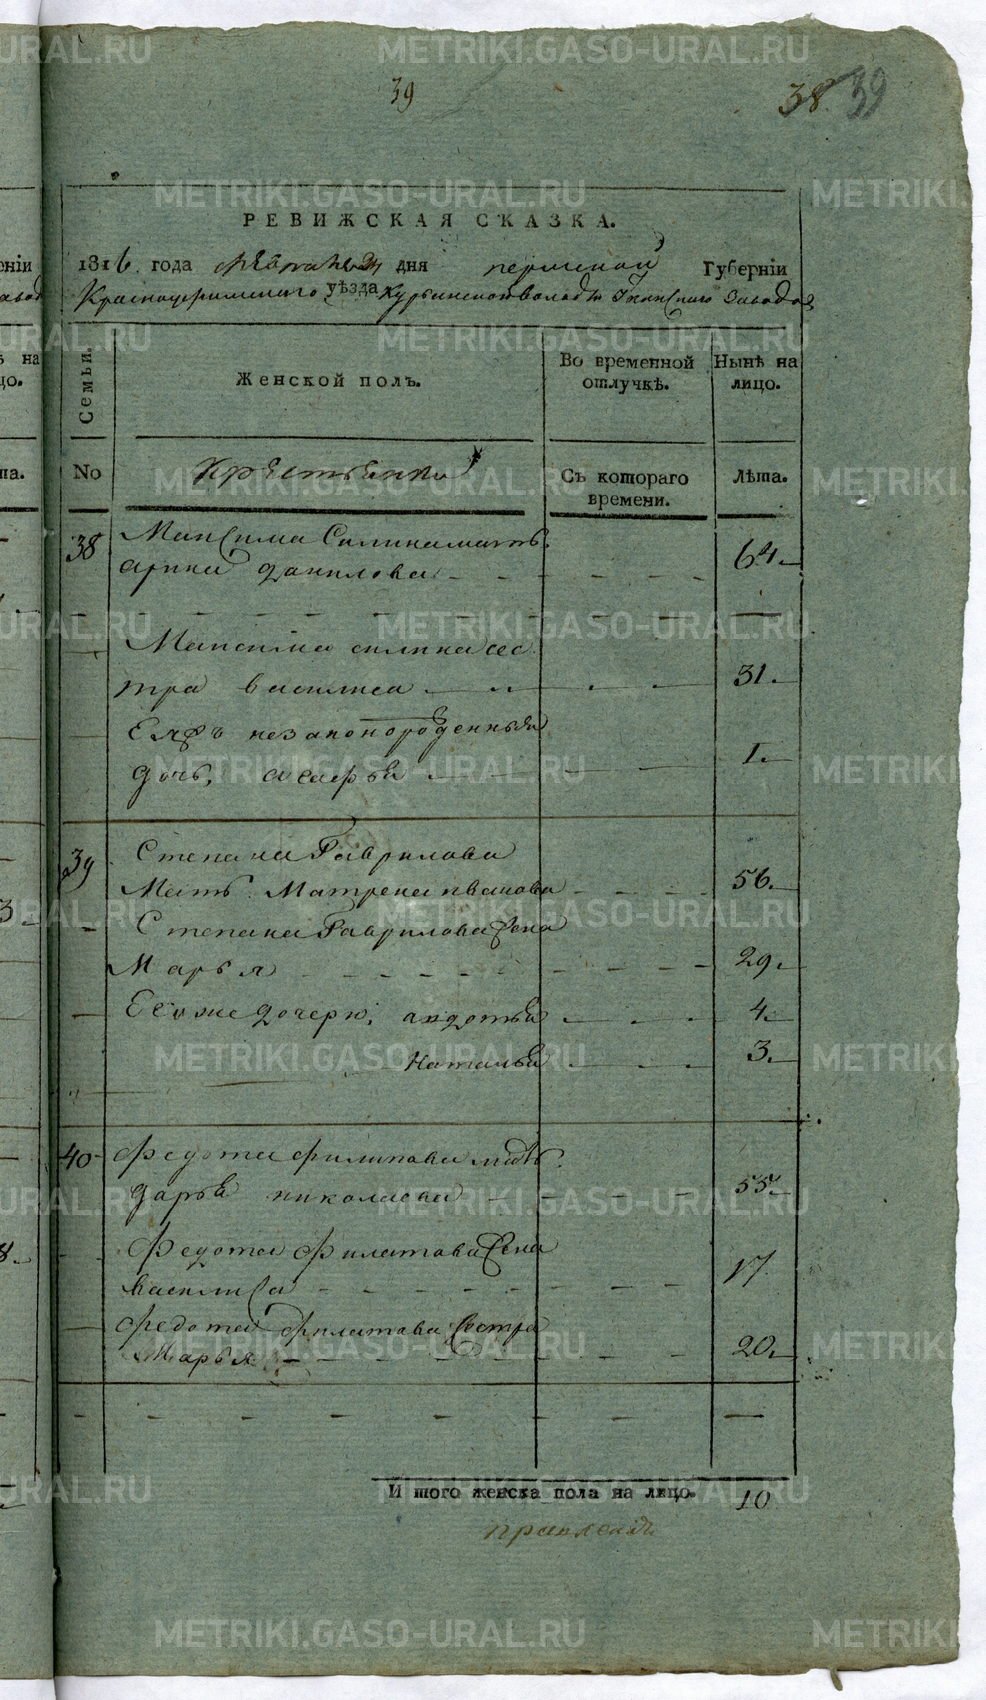 39
38 39
РЕВИЖСКАЯ СКАЗКА.
1816 года февраля дня пермской Губерніи
Красноуфимского уѣзда завода
Семьи.
Женской полъ.
Во временной отлучкѣ.
Нынѣ на лицо.
No
Крестьянки
Съ котораго времени.
Лѣта.
38 Максима Силина мать
арина данилова 64.
Максима силина сес
тра василиса 31.
Еяжъ незаконорожденныя
дочь, 1.
39 Степана Гаврилова
Мать Матрена иванова 56.
Степана Гаврилова жена
Марья 29.
Егоже дочери, авдотья 4.
Наталья 3.
40 Федота филипова мать
дарья николаева 55.
Федота Филатова жена
василиса 17.
Федота Филатова сестра
Марья 20.
И того женска пола на лицо. 10
METRIKI.GASO-URAL.RU